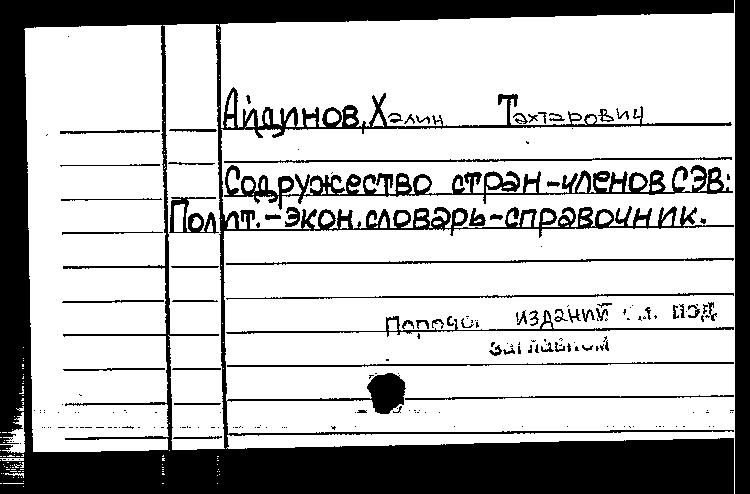 Айдинов, Халин Тахтарович
Содружество стран-членов СЭВ:
Полит.-экон. словарь-справочник.
изданий см. под
заглавием